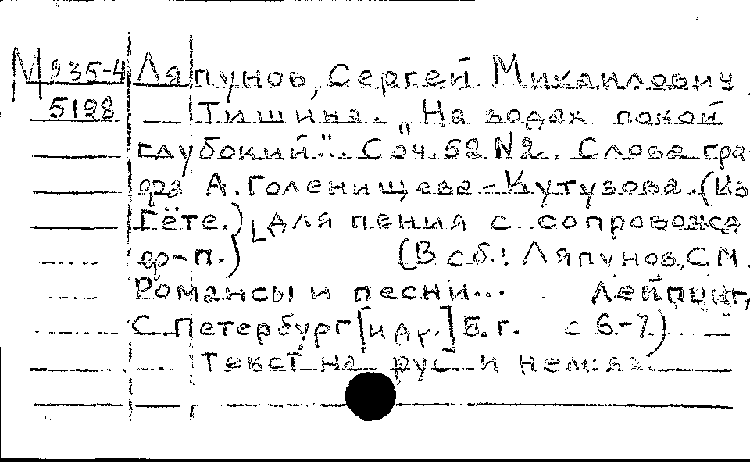 М 935-4 Ляпунов, Сергей Михайлович.
5198 — Тишина. „На водах покой
глубокий". Соч. 52 №2. Слова гра-
фа А. Голенищева-Кутузова. (Из
Гёте.) [для пения с сопровожд
ф-п.) (В сб.: Ляпунов, С.М.
Романсы и песни... Лейпциг,
С.Петербург [и др.] Б.г. с 6-7.)
Текст на рус и нем. яз.